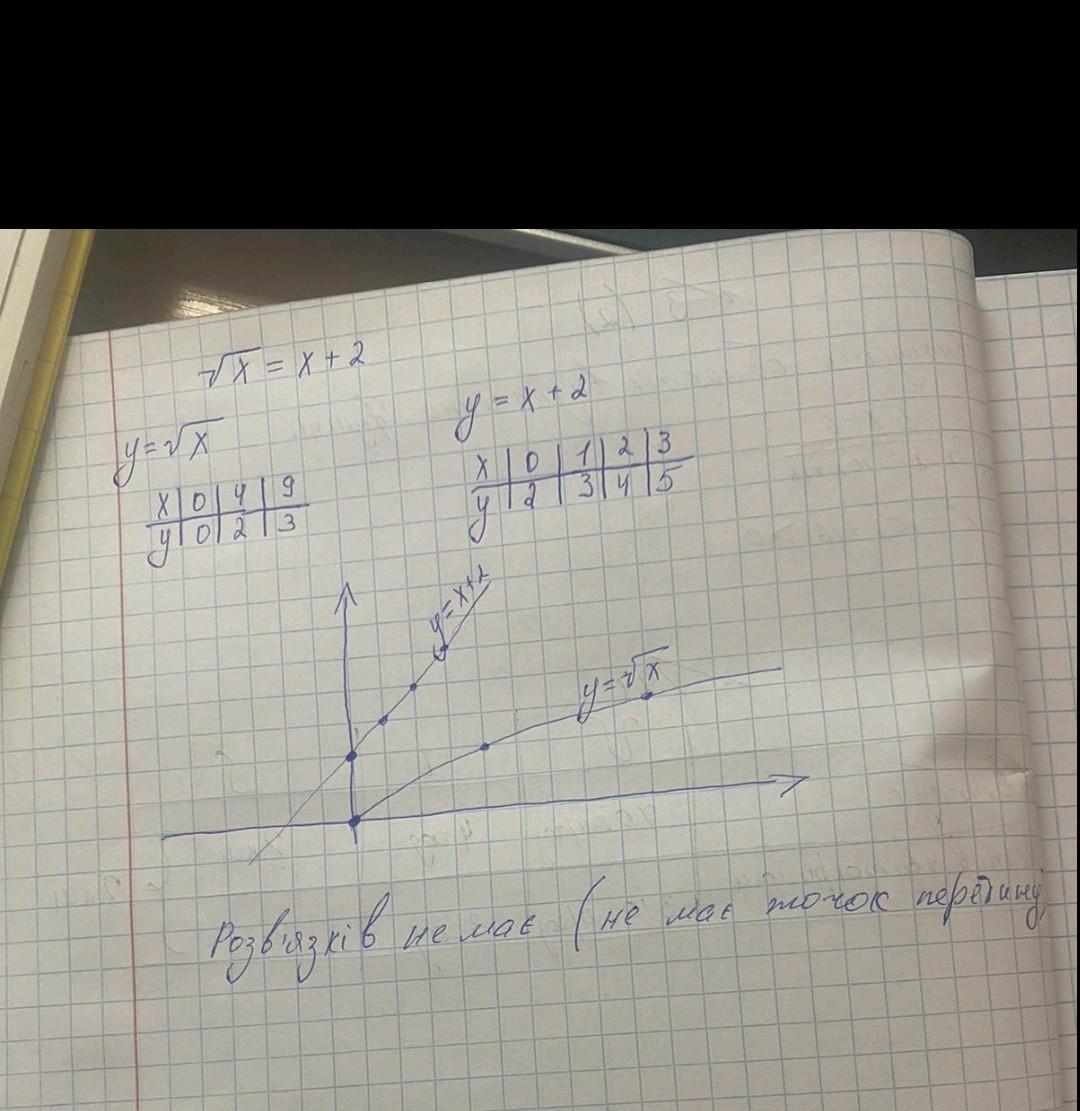 √x = x + 2
y = √x
y = x + 2
x | 0 | 4 | 9
y | 0 | 2 | 3
x | 0 | 1 | 2 | 3
y | 2 | 3 | 4 | 5
y = x+2
y = √x
Розв'язків не має (не має точок перетину)